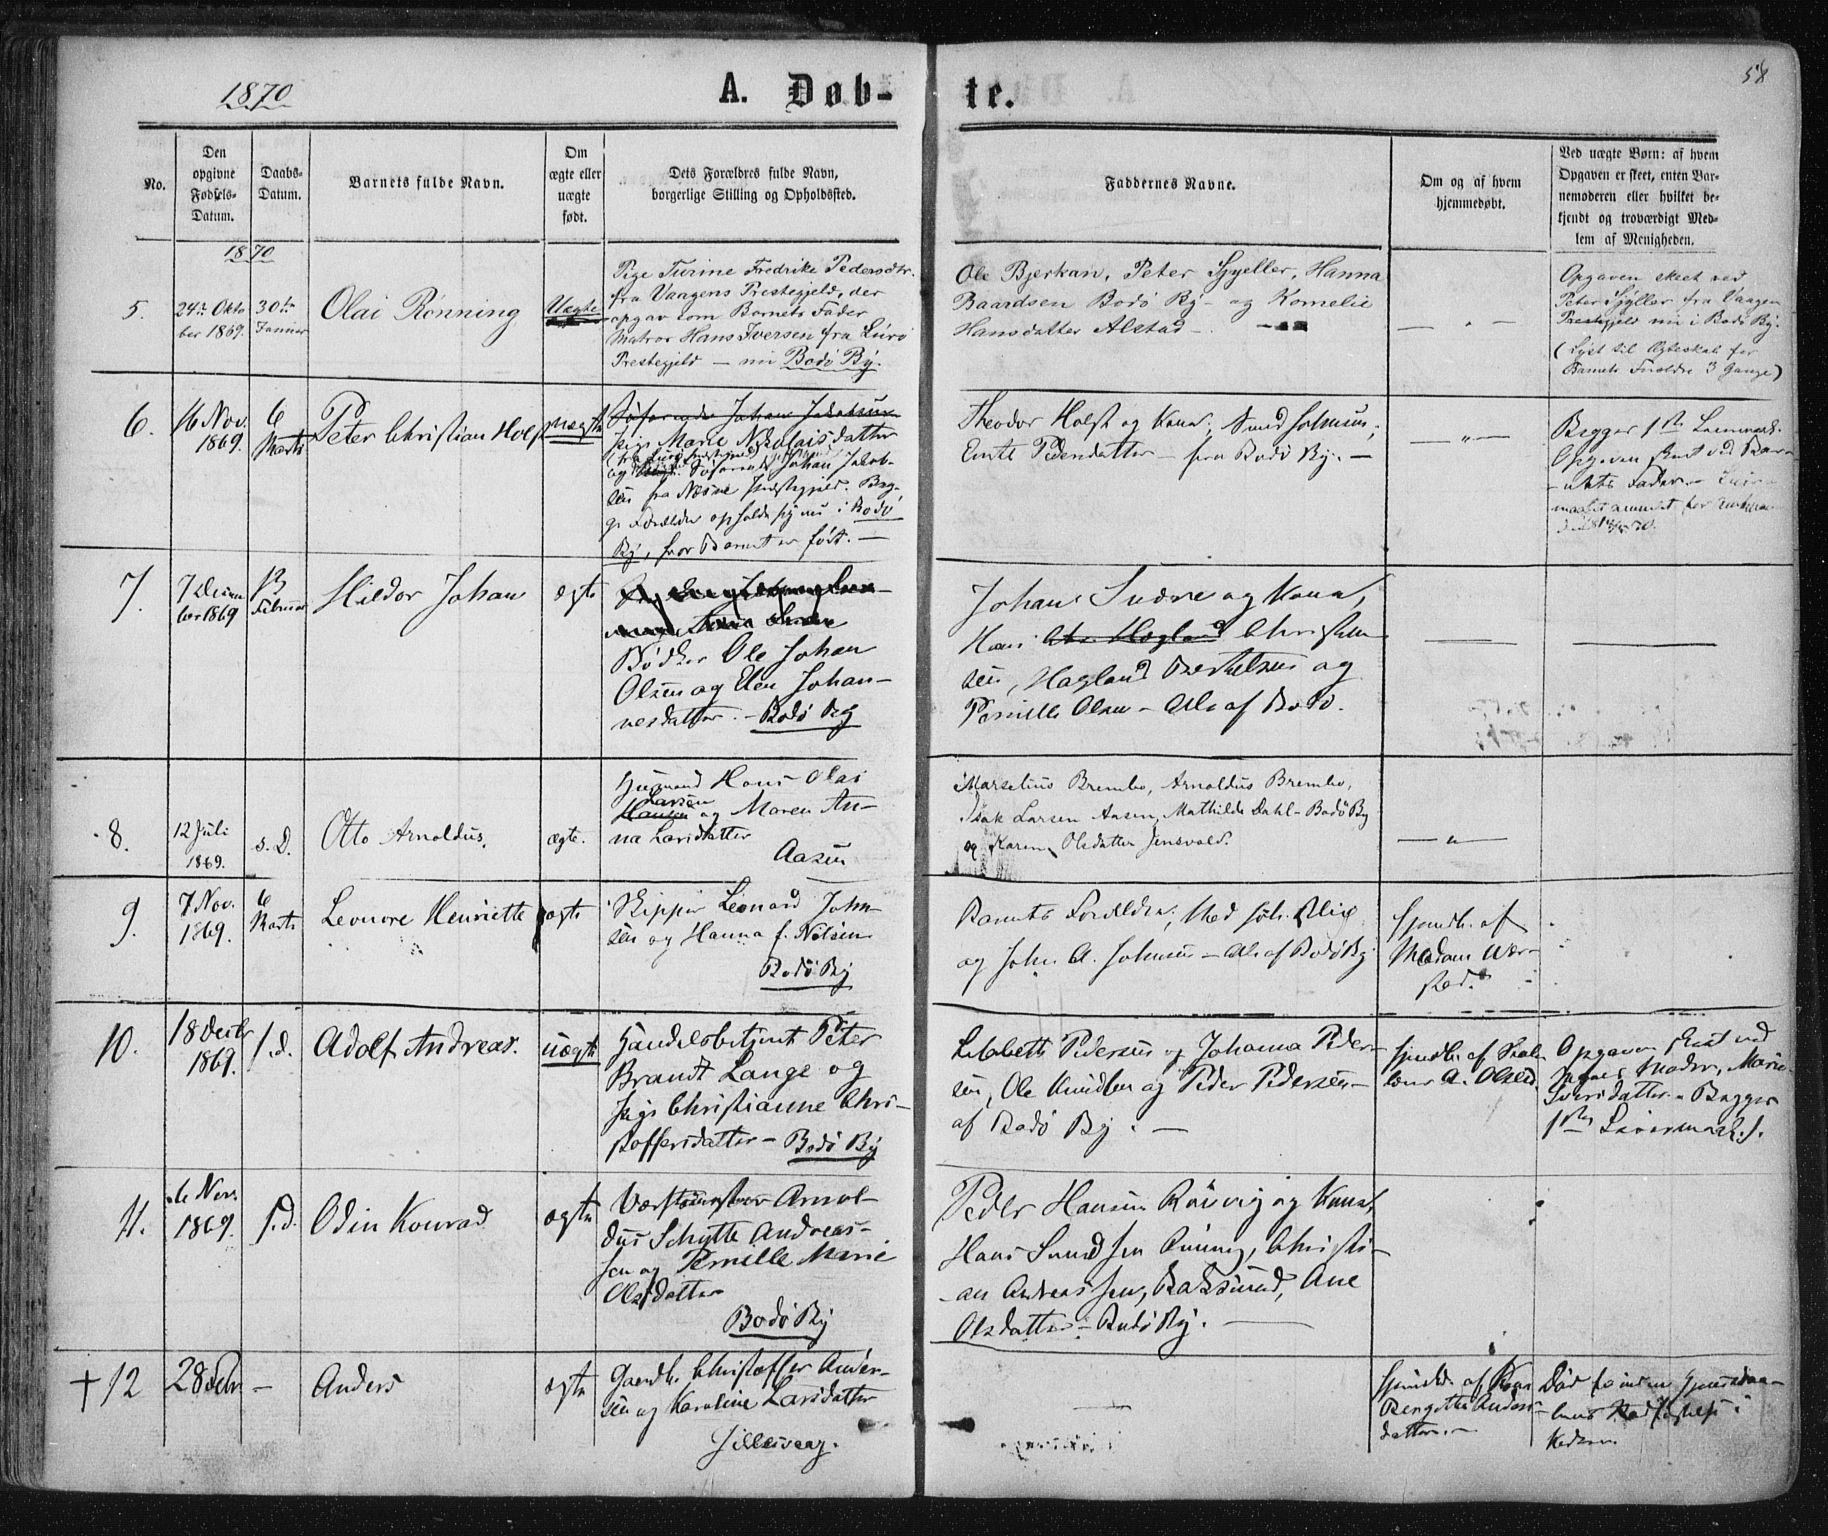 1870
A. Døb-
te.
58
No.
Den
opgivne
Fødsels-
Datum.
Daabs-
Datum.
Barnets fulde Navn.
Om
ægte eller
uægte
født.
Dets Forældres fulde Navn,
borgerlige Stilling og Opholdssted.
Faddernes Navne.
Om og af hvem
hjemmedøbt.
Ved uægte Børn: af hvem
Opgaven er skeet, enten Bar-
nemoderen eller hvilket be-
kjendt og troværdigt Med-
lem af Menigheden.
1870
5.
24de Okto
ber 1869.
30te
Januar
Olai Rønning
Uægte
Pige Turine Fredrike Pedersdtr.
fra Vaagens Prestegjeld, der
opgav som Barnets Fader
Matros Hans Iversen fra Lurö
Prestegjeld — nu Bodö By.
Ole Bjerkan, Peter Sjyeller, Hanna
Baardsen Bodö By - og Kornelie
Hansdatter Alstad -
Opgaven skeet ved
Peter Sjyller fra Vaagen
Prestegjeld nu i Bodö By.
(Lyst til Ægteskab for
Barnets Forældre 3 Gange)
6.
16 Nov.
1869.
6
Marts
Peter Christian Holst
uægte
Søfarende Johan Jakobsen
Pige Marie Nikolaisdatter
fra Lurö Prestegjeld
og Søfarende Johan Jakob-
sen fra Næsne Prestegjeld. Beg-
ge Forældre opholde sig nu i Bodö
By, hvor Barnet er født. —
Theodor Holst og Kone,
Pedersdatter — fra Bodö By. —
Begges 1ste Leiermaal.
Opgaven skeet ved Bar-
nets Fader.
7.
7 Decem
ber 1869
13
Februar
Hildor Johan
ægte
Bødker Ole Johan
Olsen og Elen Johan-
nesdatter. - Bodö By
Johan og Kone,
Hans Christen
sen, Hagland og
Pernille Olsen - Alle af Bodö.
8.
12 Juli
1869.
s. D.
Otto Arnoldus.
ægte.
Husmand Hans Olai
Larsen
Hansen og Maren An-
na Larsdatter
Aasen
Marselius Brembo, Arnoldus Brembo,
Isak Larsen Aasen, Mathilde Dahl - Bodö By
og Karen Olsdatter Jensvold.
9.
7 Nov.
1869.
6
Marts
Leonore Henriette
ægte
Skipper Leonard John-
sen og Hanna f. Nilsen
Bodö By
Barnets Forældre,
og John A. Johnsen - Alle af Bodö By
Hjemdb. af
Madam
10.
18 Decbr
1869.
s. d.
Adolf Andreas.
uægte
Handelsbetjent Peter
Brandt Lange og
Pige Christianne Chri-
stoffersdatter - Bodö By
Lisbeth Pedersen og Johanna Peder-
sen, Ole Knudsen og Peder Pedersen -
af Bodö By. —
Hjemdb. af
A. Olsen.
Opgaven skeet ved
Pigens Moder, Marie
Iversdatter - Begges
1ste Leiermaal.
11.
6 Nov.
1869.
s. d.
Odin Konrad
ægte
Arnol-
dus Schytte Andreas-
sen og Pernille Marie
Olsdatter
Bodö By
Peder Hansen Rövig og Kone,
Hans Christi-
an Andreassen, Ane
Olsdatter - Bodö By. —
† 12
28 Febr
—
Anders
ægte
Gaardb. Christoffer Ander-
sen og Karoline Larsdatter
Hjemdb. af
Anders-
datter. -
Død inden Hjemmedaa-
bens Stadfæstelse i
Kirken.